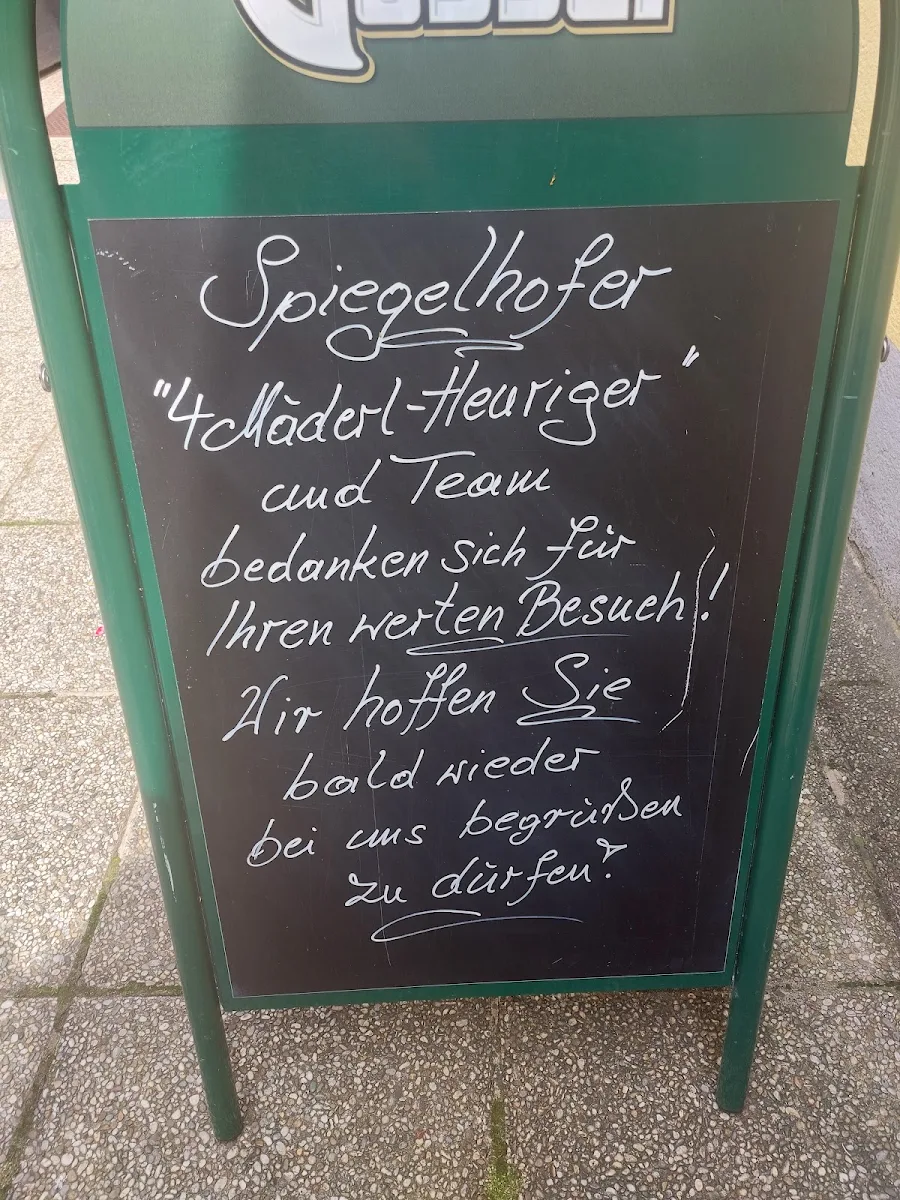 Gösser
Spiegelhofer
"4 Mäderl-Heuriger"
und Team
bedanken sich für
Ihren werten Besuch!
Wir hoffen Sie
bald wieder
bei uns begrüßen
zu dürfen!